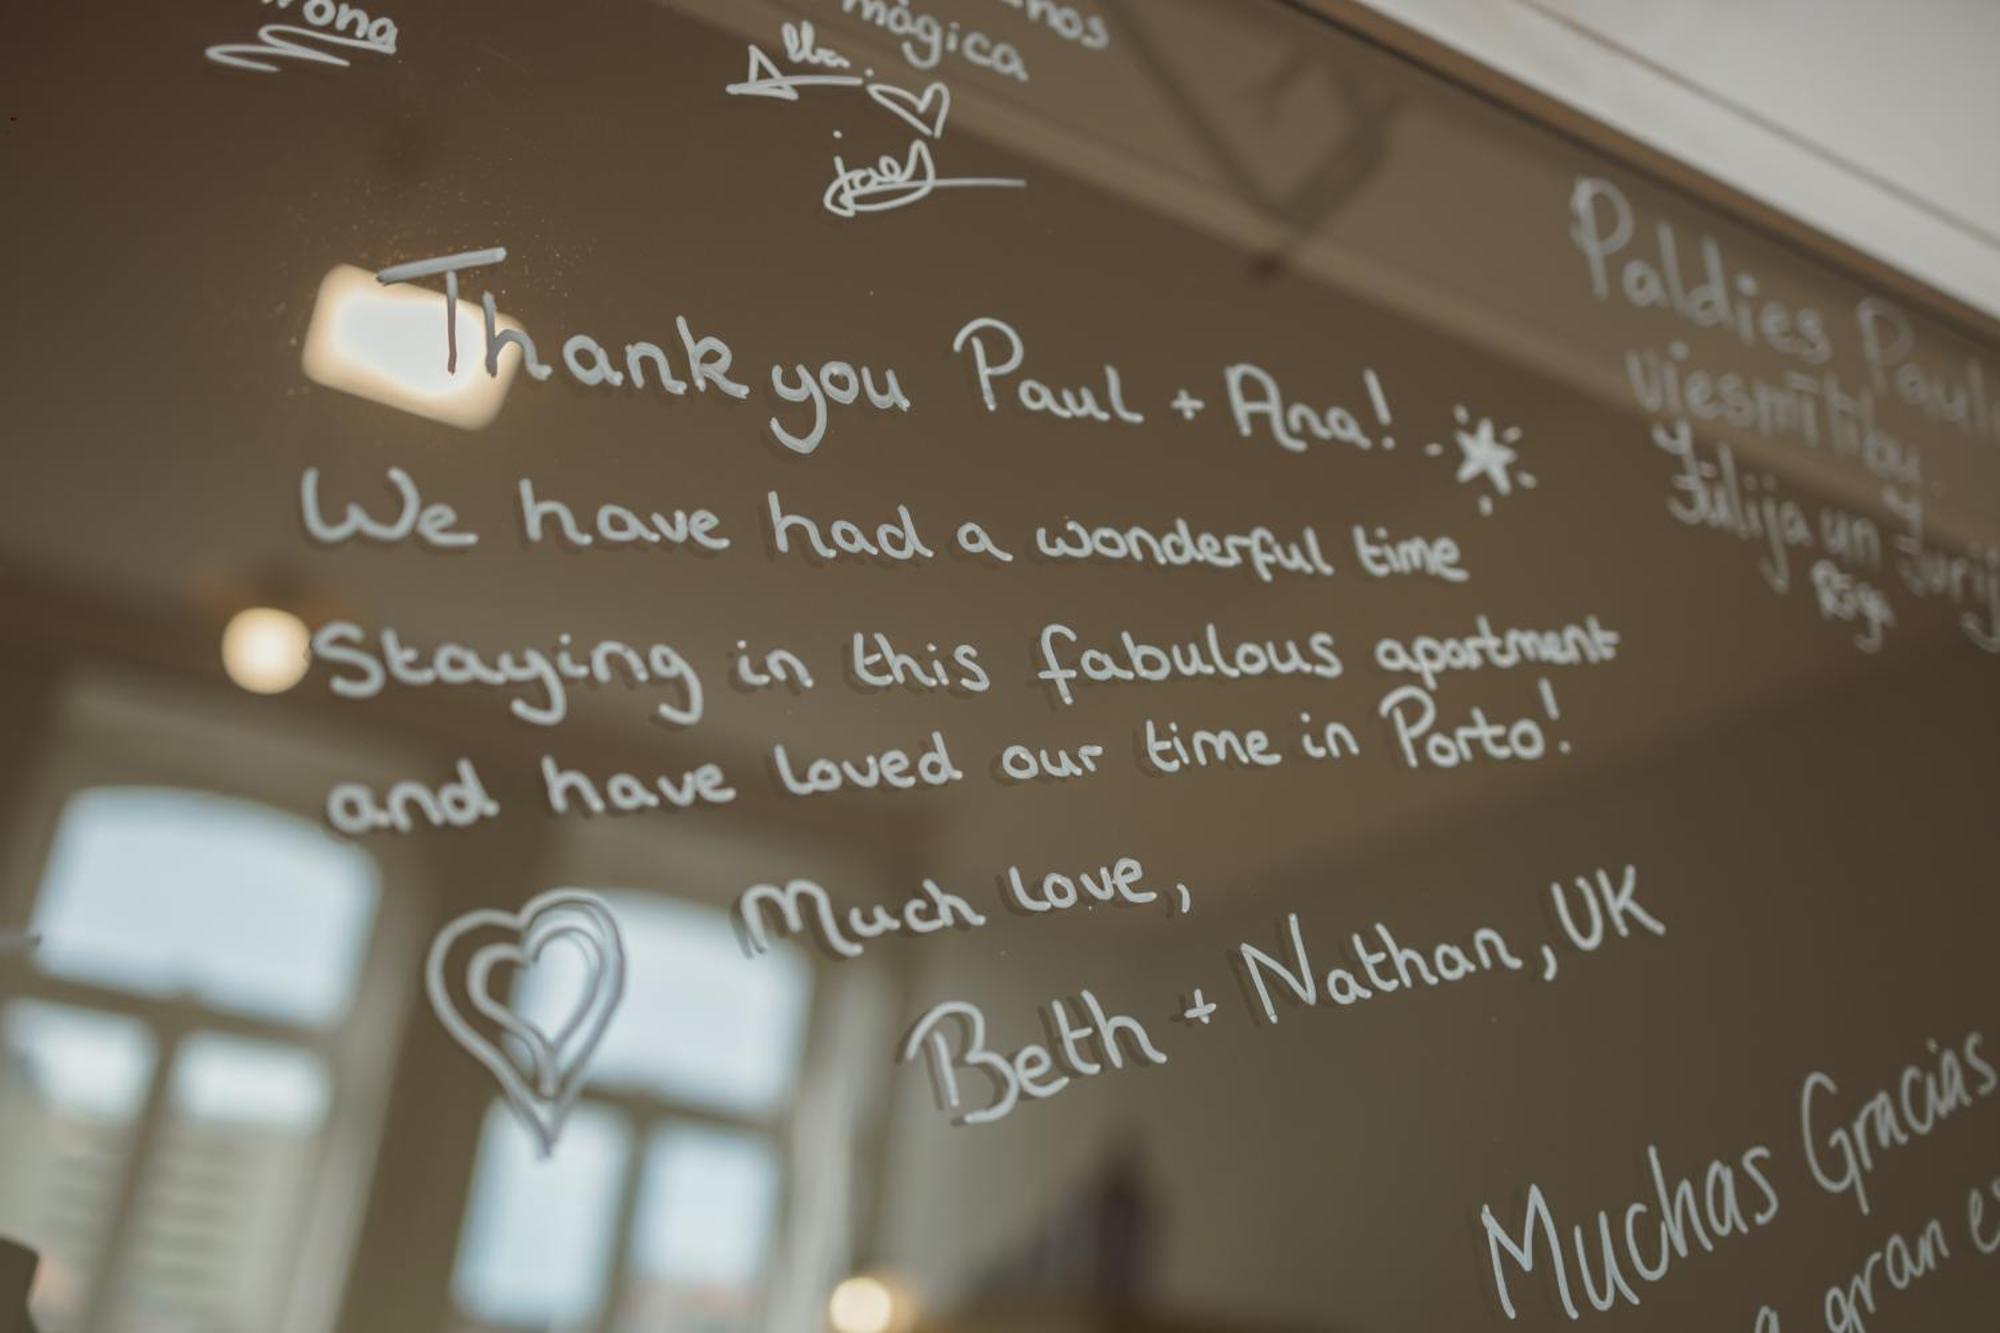 rona
nos
màgica
Alba.
joel
Thank you Paul + Ana!
We have had a wonderful time
Staying in this fabulous apartment
and have loved our time in Porto!
Much love,
Beth + Nathan, UK
Paldies Paul
Jūlija un Jurij
Rīga
Muchas Gracias
a gran es